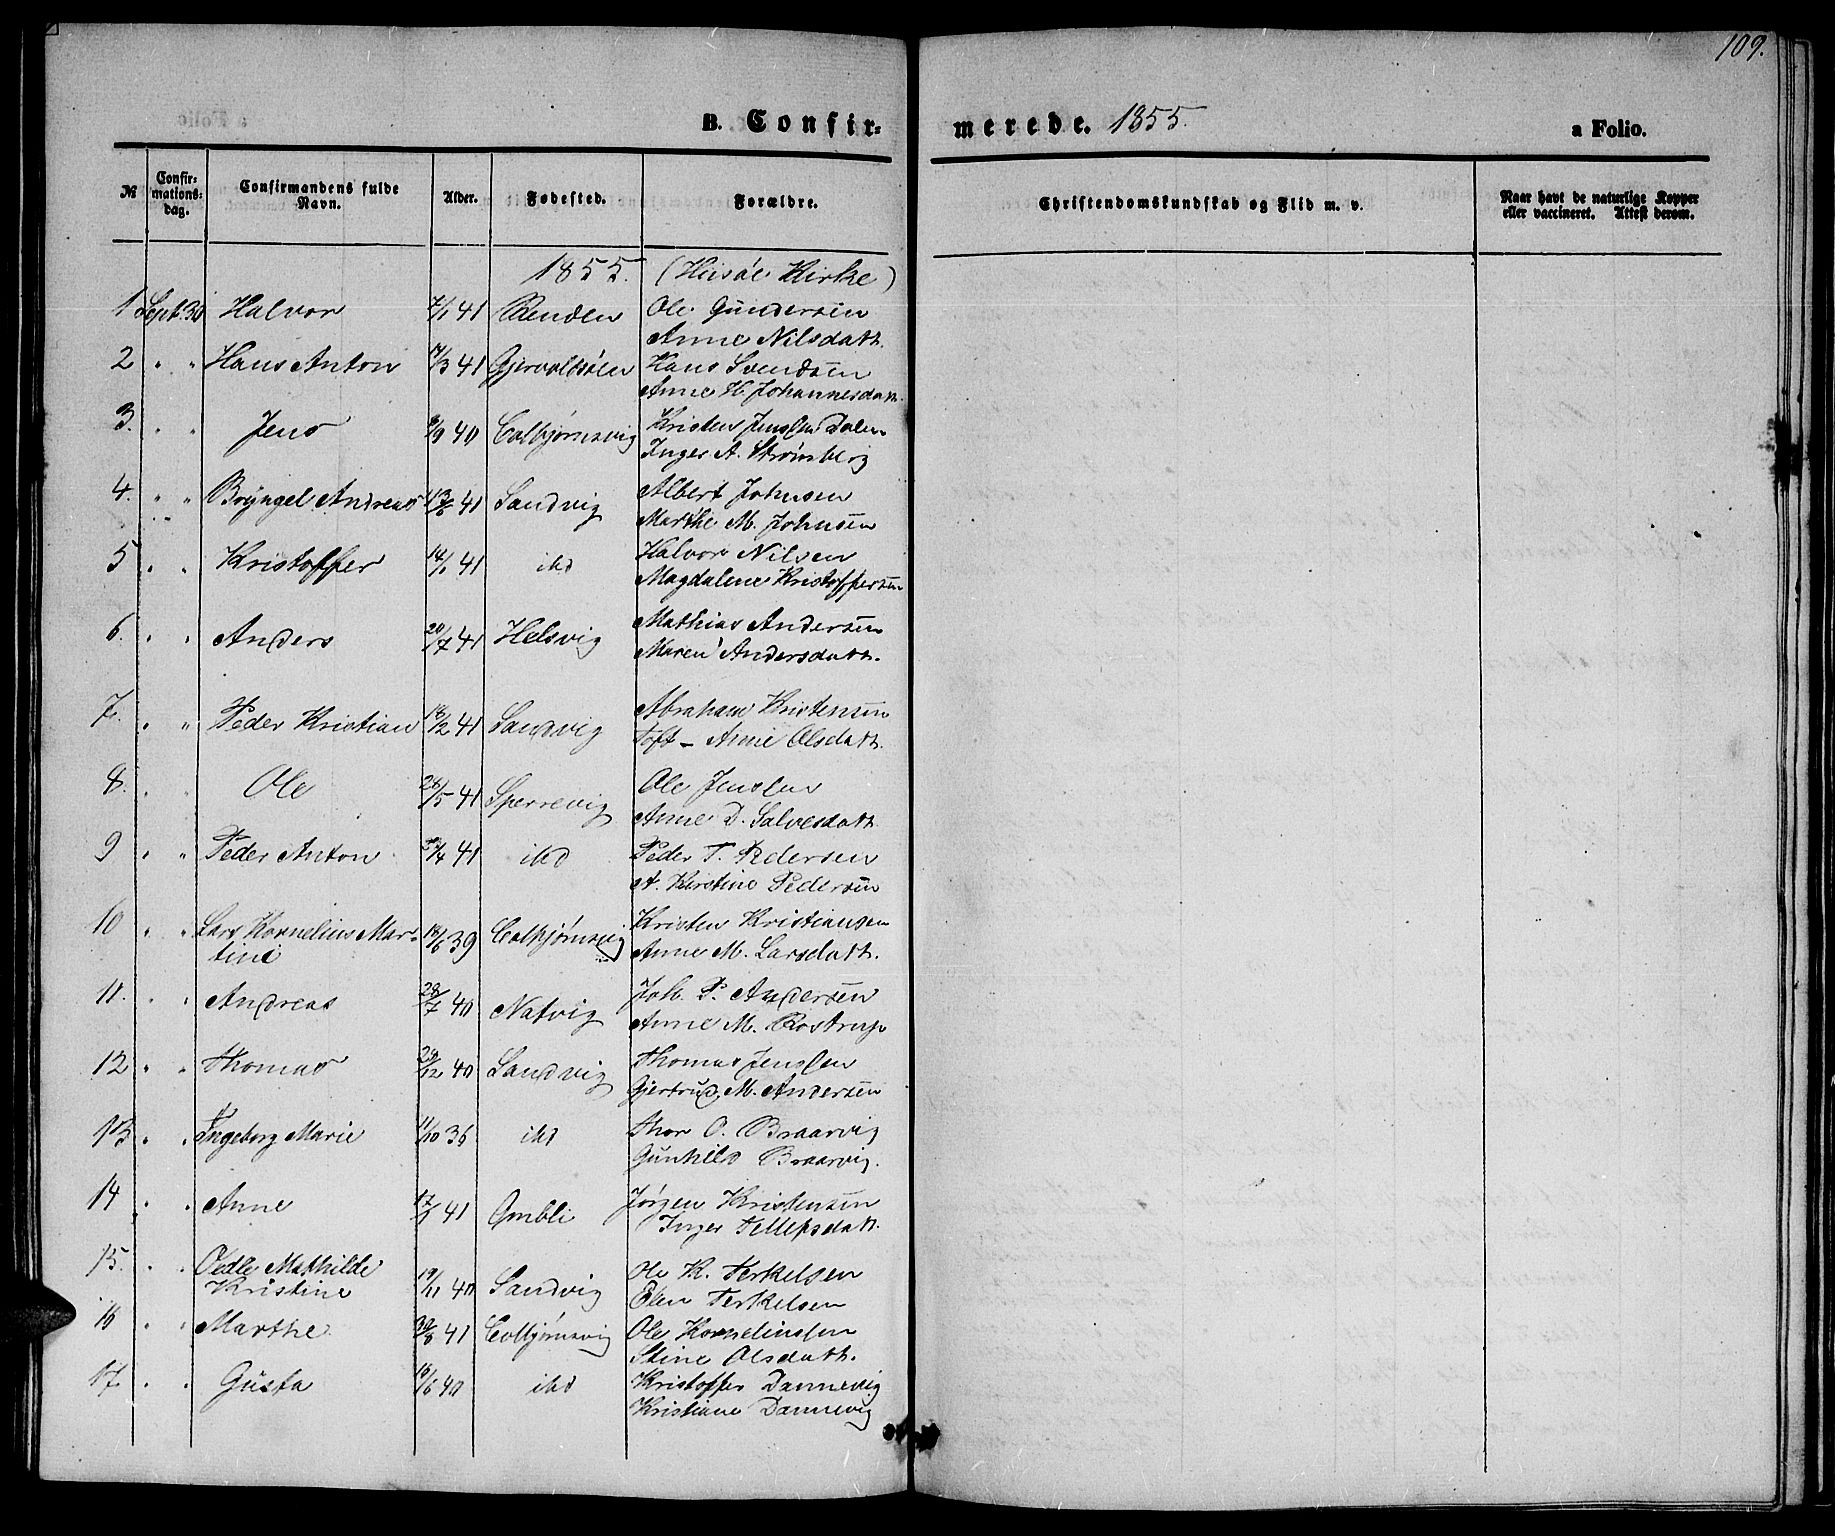 109.
B. Confir-
merede. 1855.
a Folio.
№
Confir-
mations-
dag.
Confirmandens fulde
Navn.
Alder.
Fødested.
Forældre.
Christendomskundskab og Flid m. v.
Naar havt de naturlige Kopper
eller vaccineret. Attest derom.
1855. (Hisöe Kirke)
1 Sept. 30 Halvor 7/1 41 Renden Ole Gundersen
Anne Nilsdatt.
2 " " Hans Anton 17/3 41 Gjervoldsöen Hans Svendsen
Anne H. Johannesdatt.
3. " " Jens 9/9 40 Colbjørnsvig Kristen Jenssen Dalen
Inger A. Strømberg
4. " " Bryngel Andreas 13/6 41 Sandvig Albert Johnsen
Marthe M. Johnsen
5 " " Kristoffer 14/1 41 ibd Halvor Nilsen
Magdalene Kristoffersen
6. " " Anders 20/7 41 Helsvig Mathias Andersen
Maren Andersdatt.
7. " " Peder Kristian 18/2 41 Sandvig Abraham Kristensen
Toft - Anne Olsdatt.
8. " " Ole 28/5 41 Sperrevig Ole Jenssen
Anne D. Salvesdatt
9 " " Peder Anton /4 41 ibd Peder T. Pedersen
A. Kirstine Pedersen
10 " " Lars Kornelius Mar- 18/6 39 Colbjørnsvig Kristen Kristiansen
tini Anne M. Larsdatt.
11. " " Andreas 28/7 40 Natvig Joh. P. Andersen
Anne M. Rostrup
12 " " Thomas 29/12 40 Sandvig Thomas Jenssen
Gjertrud M. Andersen
13 " " Ingeborg Marie 11/10 36 ibd Thor O. Braarvig
Gunhild Braarvig.
14 " " Anne 17/1 41 Gmbli Jörgen Kristensen
Inger Tellefsdatt.
15. " " Oedle Mathilde 19/11 40 Sandvig Ole K. Terkelsen
Kristine Elen Terkelsen
16 " " Marthe 30/8 41 Colbjørnsvig Ole Korneliussen
Stine Olsdatt.
17. " " Gusta 16/6 40 ibd Kristoffer Dannevig
Kristiane Dannevig